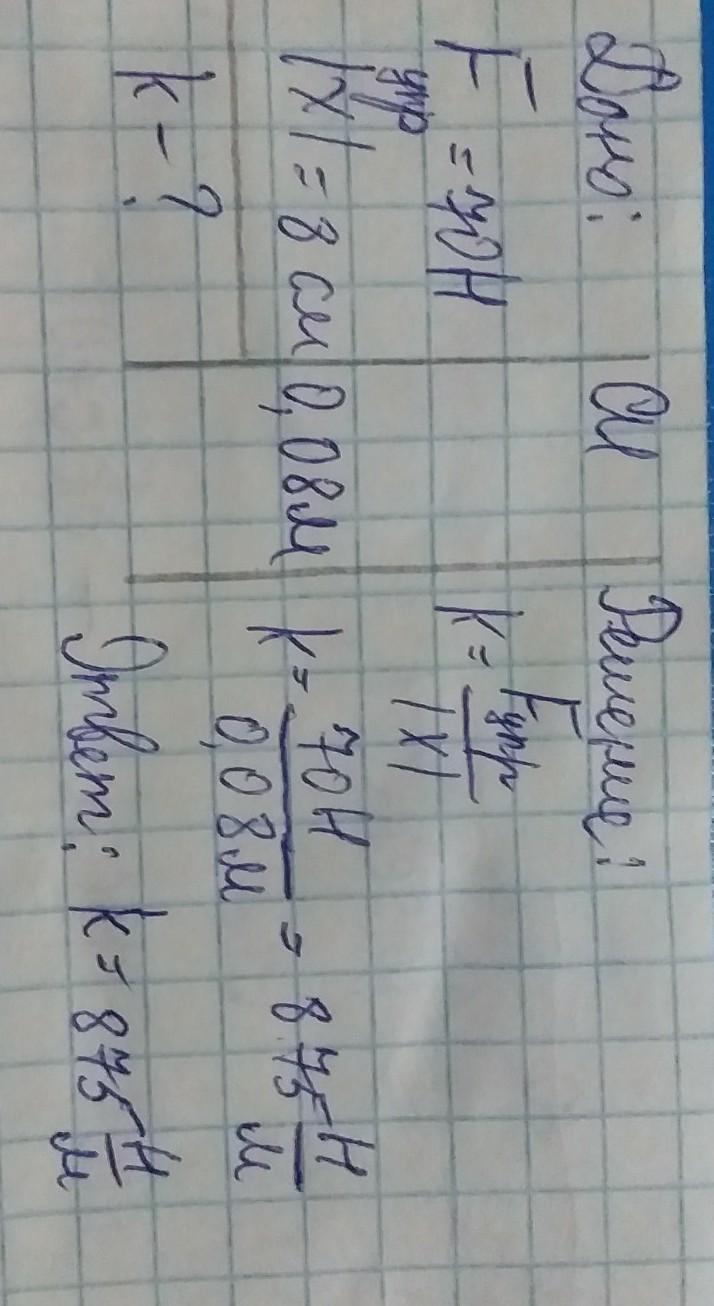 Дано:
Fупр = 70H
|x| = 8 см
k - ?
СИ
0,08м
Решение:
k = Fупр / |x|
k = 70H / 0,08м = 875 H/м
Ответ: k = 875 H/м